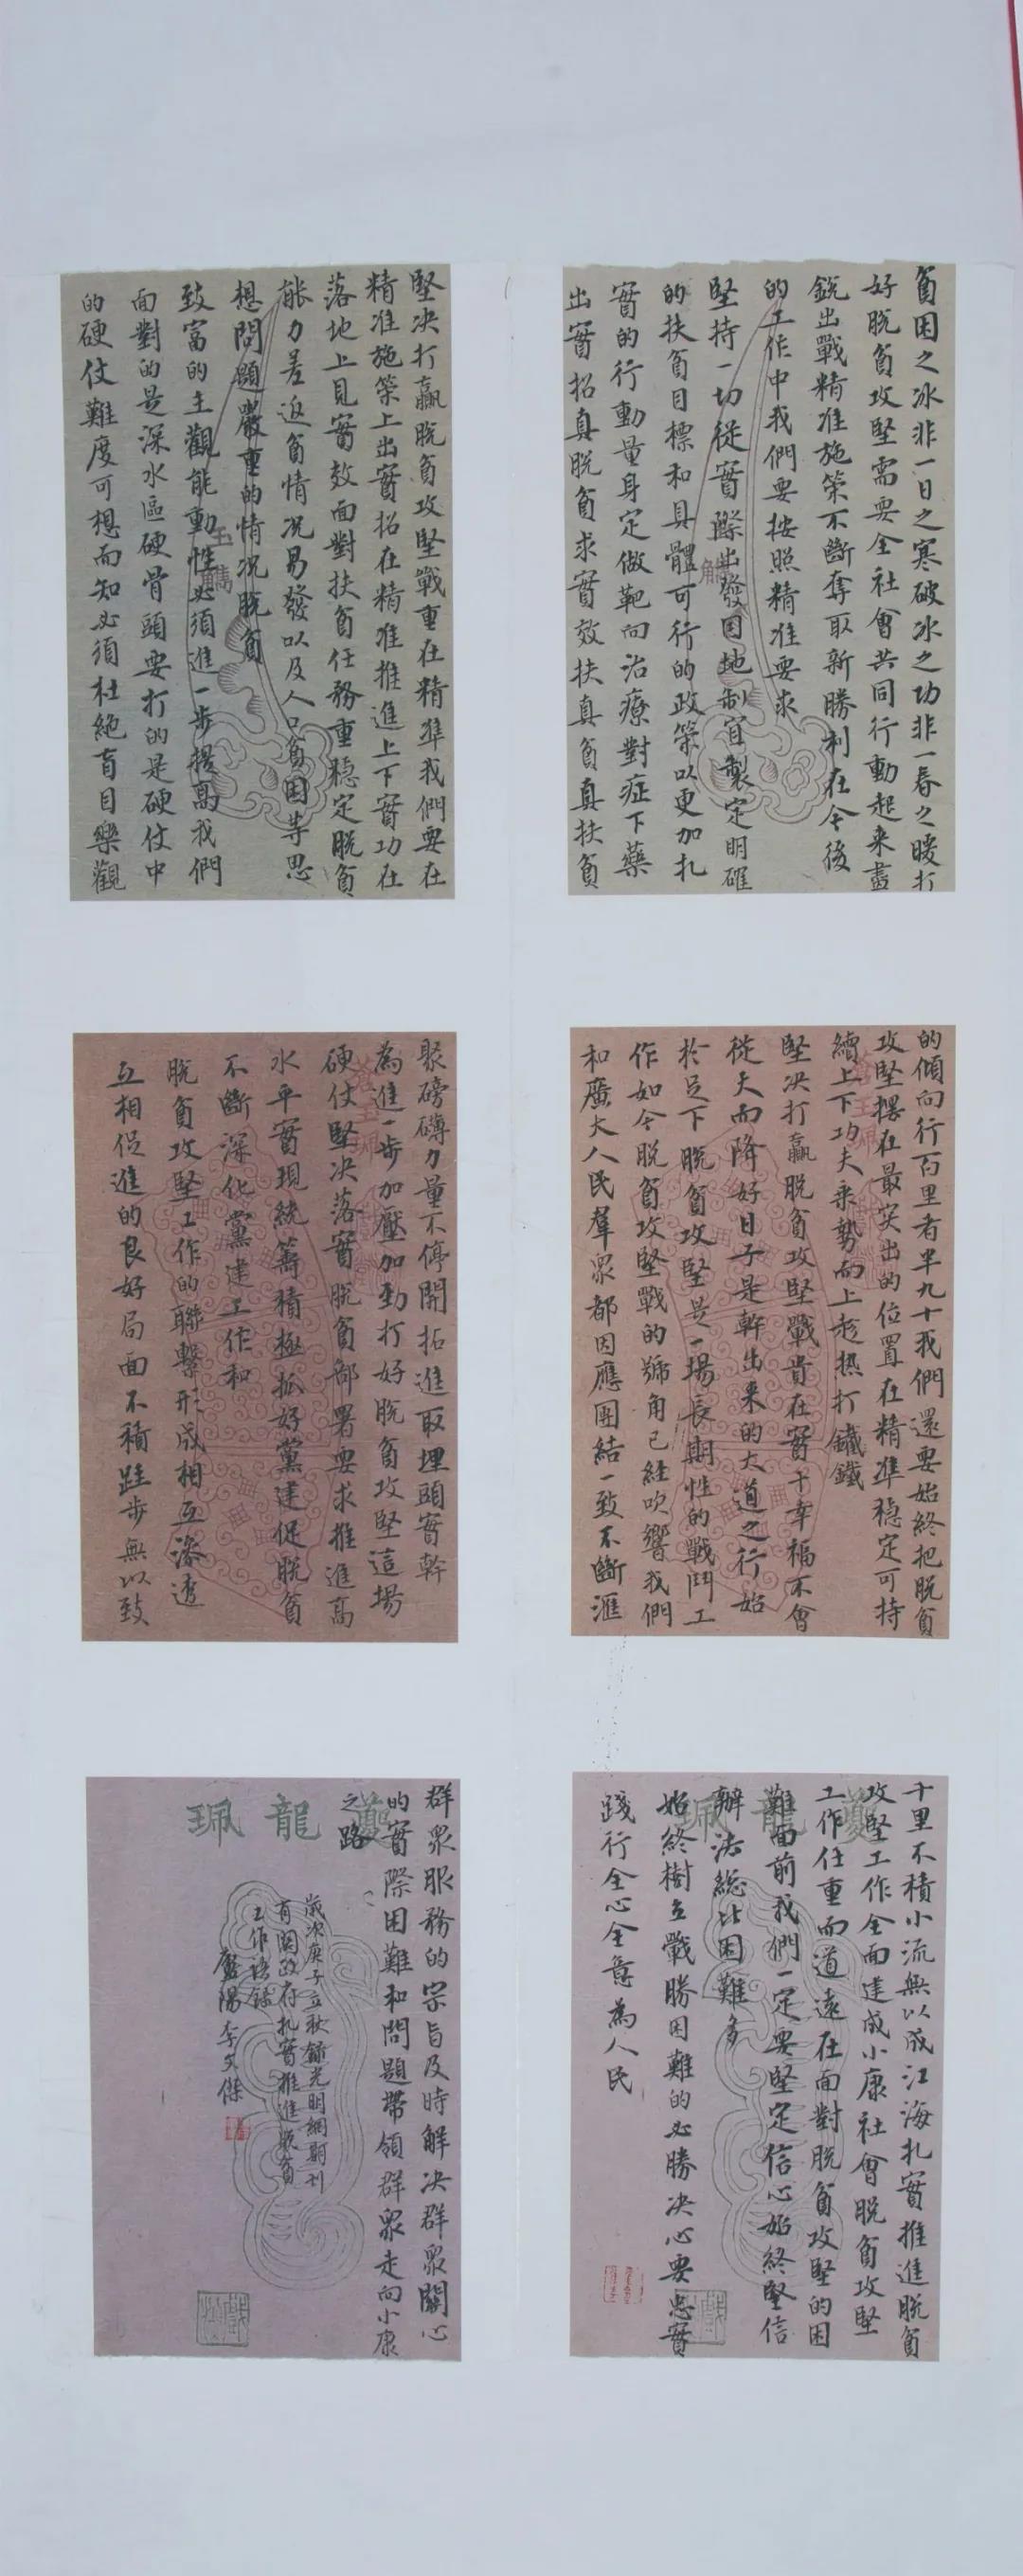 貧困之冰非一日之寒破冰之功非一春之暖打
好脫貧攻堅需要全社會共同行動起来盡
銳出戰精准施策不斷奪取新勝利在今後
的工作中我們要按照精准要求
堅持一切從實際出發因地制宜製定明確
的扶貧目標和具體可行的政策以更加扎
實的行動量身定做靶向治療對症下藥
出實招真脫貧求實效扶真貧真扶貧
堅决打贏脫貧攻堅戰重在精準我們要在
精准施策上出實招在精准推進上下實功在
落地上見實效面對扶貧任務重穩定脫貧
能力差返貧情况易發以及人口貧困等思
想問題嚴重的情况脫貧
致富的主觀能動性必須進一步提高我們
面對的是深水區硬骨頭要打的是硬仗中
的硬仗難度可想而知必須杜絕盲目樂觀
的傾向行百里者半九十我們還要始終把脫貧
攻堅擺在最突出的位置在精準穩定可持
續上下功夫乘勢而上趁热打鐵鐵
堅决打贏脫貧攻堅戰貴在實干幸福不會
從天而降好日子是幹出来的大道之行始
於足下脫貧攻堅是一場長期性的戰鬥工
作如今脫貧攻堅戰的號角已經吹響我們
和廣大人民羣眾都因應團結一致不斷滙
聚磅礴力量不停開拓進取埋頭實幹
為進一步加壓加勁打好脫貧攻堅這場
硬仗堅决落實脫貧部署要求推進高
水平實現統籌積極抓好黨建促脫貧
不斷深化黨建工作和
脫貧攻堅工作的聯繫形成相互滲透
互相促進的良好局面不積跬步無以致
千里不積小流無以成江海扎實推進脫貧
攻堅工作全面建成小康社會脫貧攻堅
工作任重而道遠在面對脫貧攻堅的困
難面前我們一定要堅定信心始終堅信
辦法總比困難多
始終樹立戰勝困難的必勝决心要忠實
踐行全心全意為人民
群眾服務的宗旨及時解决群眾關心
的實際困難和問題帶領群眾走向小康
之路
歲次庚子立秋錄光明網期刊
有關政府扎實推進脫貧
工作語錄
李文傑
夔龍珮
夔龍珮